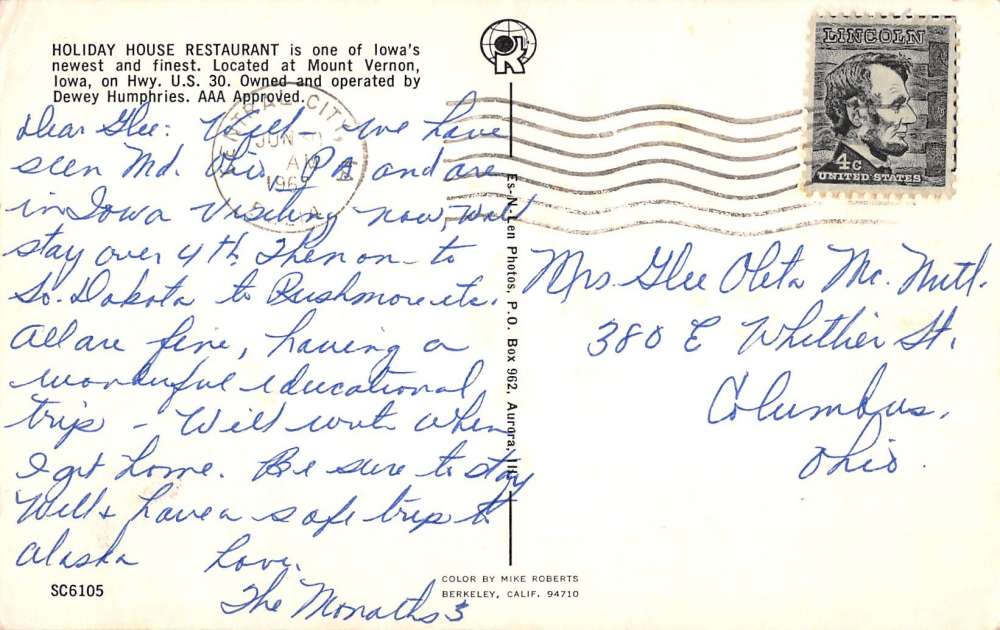 HOLIDAY HOUSE RESTAURANT is one of Iowa's
newest and finest. Located at Mount Vernon,
Iowa, on Hwy. U.S. 30. Owned and operated by
Dewey Humphries. AAA Approved.
Dear Glee: Well - we have
seen Md. Ohio PA and are
in Iowa visiting now, will
stay over 4th. Then on to
So. Dakota to Rushmore etc.
All are fine, having a
wonderful educational
trip - Will write when
I get home. Be sure to stay
Well & have a safe trip to
Alaska Love.
The Monaths
SC6105
CITY,
JUN
AM
196
Es-N-Len Photos, P.O. Box 962, Aurora, Ill.
COLOR BY MIKE ROBERTS
BERKELEY, CALIF. 94710
LINCOLN
4c
UNITED STATES
Mrs. Glee Oleta Mc. Nutt.
380 E Whittier St.
Columbus.
Ohio.